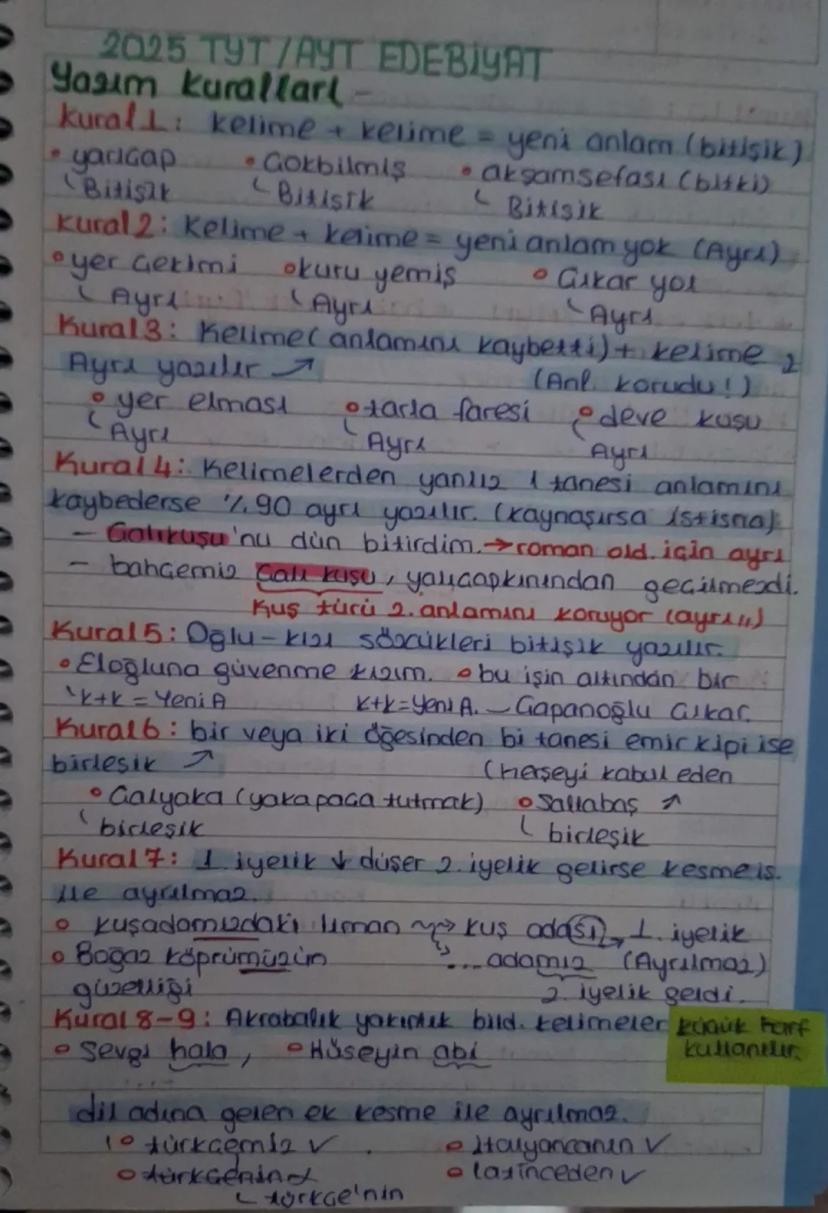 2025 TYT/AYT EDEBİYAT
Yazım Kuralları -
Kural 1: Kelime + kelime = yeni anlam (bitişik)
• yarıçap • Çokbilmiş • akşamsefası (bitki)
Bitişik Bitişik Bitişik
Kural 2: Kelime + kelime = yeni anlam yok (Ayrı)
• yer çekimi • kuru yemiş • Çıkar yol
Ayrı Ayrı Ayrı
Kural 3: Kelime (anlamını kaybetti) + kelime 2
Ayrı yazılır ↗ (Anl. korudu!)
• yer elması • tarla faresi • deve kuşu
Ayrı Ayrı Ayrı
Kural 4: Kelimelerden yanlız 1 tanesi anlamını
kaybederse %90 ayrı yazılır. (kaynaşırsa istisna)
- Çalıkuşu'nu dün bitirdim. → roman old. için ayrı
- bahçemiz çalı kuşu, yalıçapkınından geçilmezdi.
Kuş türü 2. anlamını koruyor (ayrı!!)
Kural 5: Oğlu - kızı sözcükleri bitişik yazılır.
• Eloğluna güvenme kızım. • bu işin altından bir
k+k = Yeni A k+k = Yeni A. - Çapanoğlu çıkar.
Kural 6: bir veya iki öğesinden bi tanesi emir kipi ise
birleşik ↗ (herşeyi kabul eden
• Çalyaka (yaka paça tutmak) • Sallabaş ↗
birleşik birleşik
Kural 7: 1. iyelik ↓ düşer 2. iyelik gelirse kesme iş.
ile ayrılmaz.
• kuşadamızdaki liman → kuş adası → 1. iyelik
• Boğaz köprümüzün ... adamız (Ayrılmaz)
güzelliği 2. iyelik geldi.
Kural 8-9: Akrabalık yakınlık bild. kelimeler küçük harf
kullanılır.
• Sevgi hala, • Hüseyin abi
dil adına gelen ek kesme ile ayrılmaz.
• türkçemiz ✓ • İtalyancanın ✓
• türkçenin ✓ • latinceden ✓
türkçe'nin